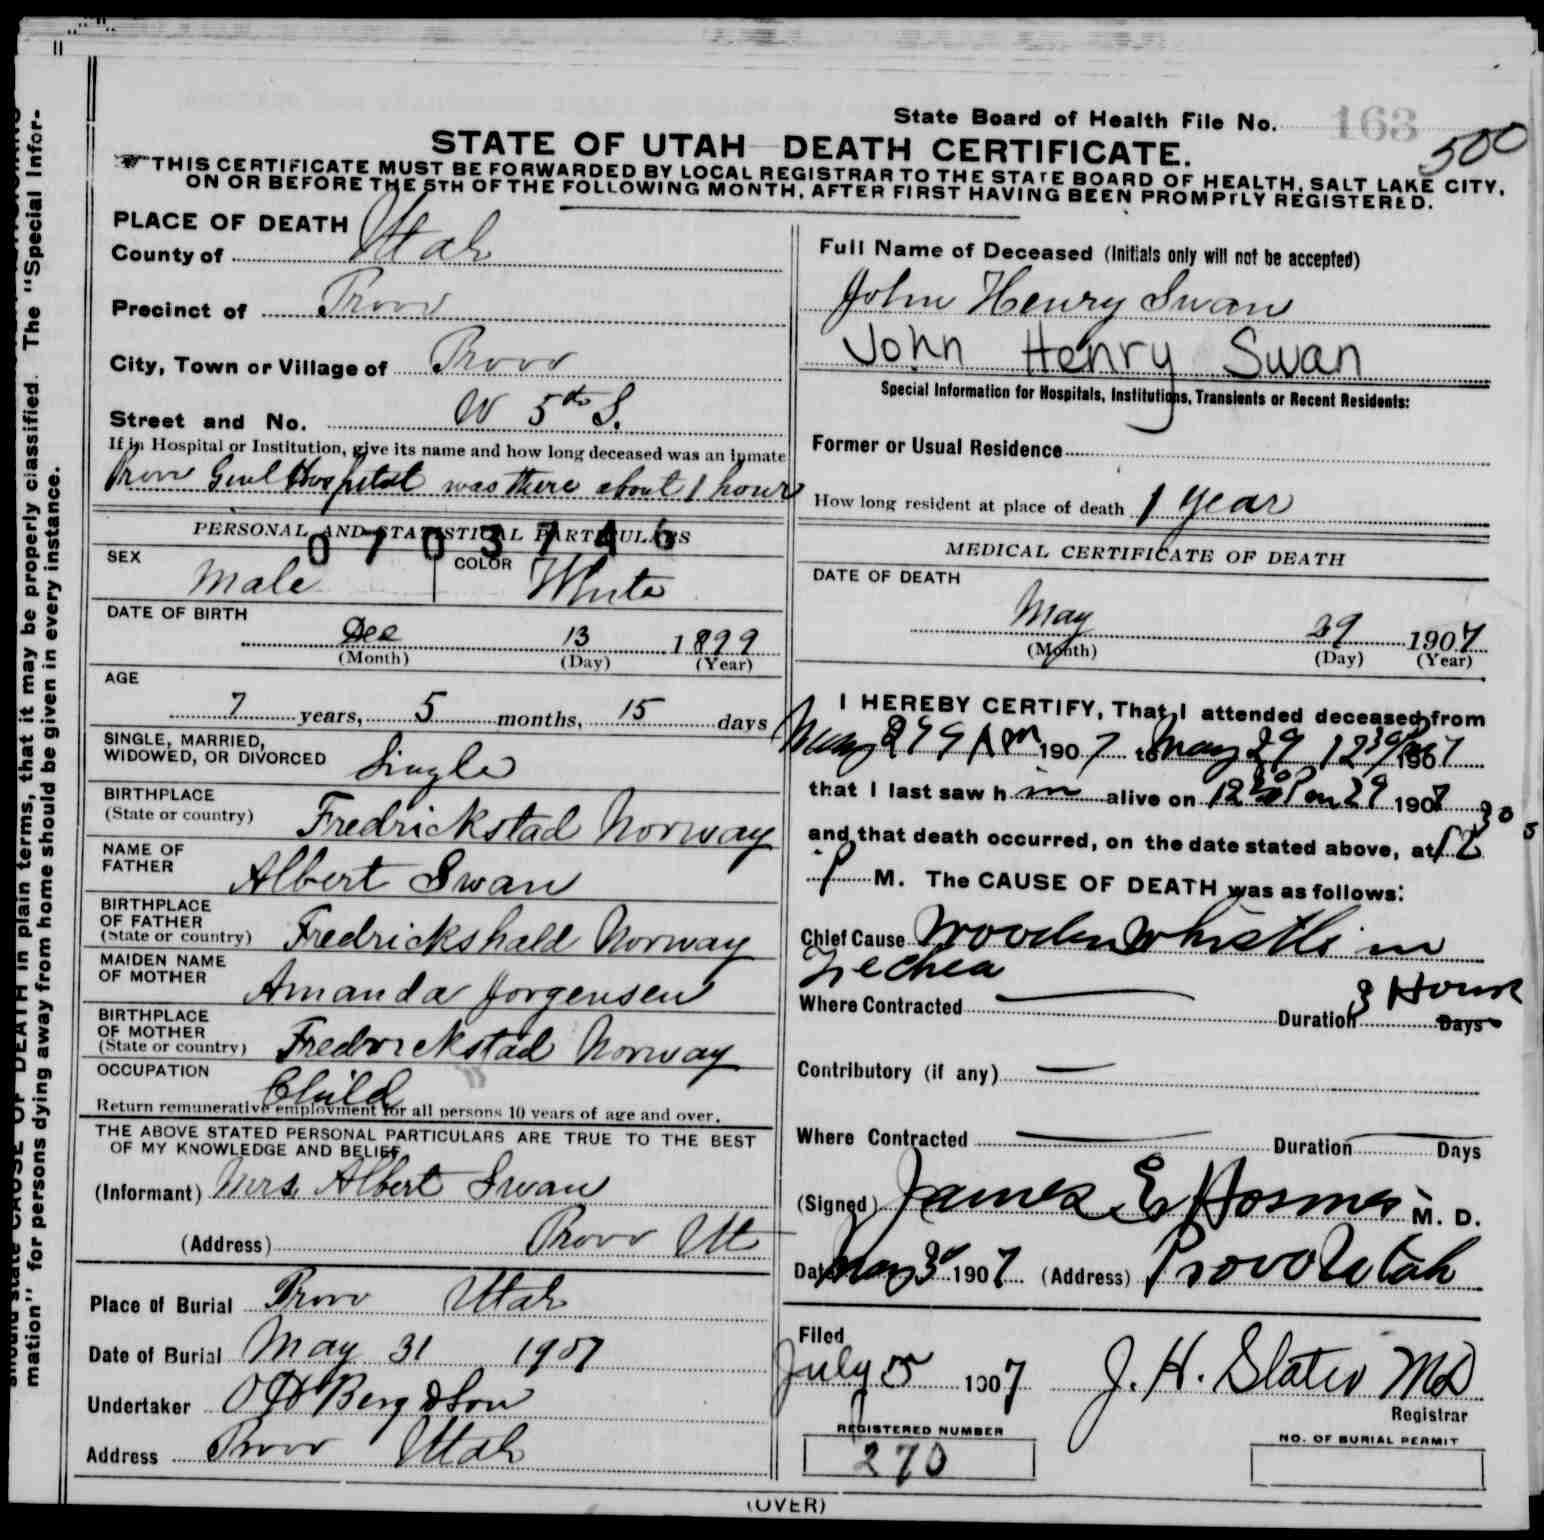 State Board of Health File No. 163
500
STATE OF UTAH DEATH CERTIFICATE.
THIS CERTIFICATE MUST BE FORWARDED BY LOCAL REGISTRAR TO THE STATE BOARD OF HEALTH, SALT LAKE CITY,
ON OR BEFORE THE 5TH OF THE FOLLOWING MONTH, AFTER FIRST HAVING BEEN PROMPTLY REGISTERED.
PLACE OF DEATH
County of Utah
Precinct of Provo
City, Town or Village of Provo
Street and No. W 5th S.
If in Hospital or Institution, give its name and how long deceased was an inmate
Provo Genl Hospital was there about 1 hour
PERSONAL AND STATISTICAL PARTICULARS
0703746
SEX Male
COLOR White
DATE OF BIRTH
Dec 13 1899
(Month) (Day) (Year)
AGE
7 years, 5 months, 15 days
SINGLE, MARRIED,
WIDOWED, OR DIVORCED Single
BIRTHPLACE
(State or country) Fredrickstad Norway
NAME OF
FATHER Albert Swan
BIRTHPLACE
OF FATHER
(State or country) Fredrickshald Norway
MAIDEN NAME
OF MOTHER Amanda Jorgensen
BIRTHPLACE
OF MOTHER
(State or country) Fredrickstad Norway
OCCUPATION
Child
Return remunerative employment for all persons 10 years of age and over.
THE ABOVE STATED PERSONAL PARTICULARS ARE TRUE TO THE BEST
OF MY KNOWLEDGE AND BELIEF
(Informant) Mrs Albert Swan
(Address) Provo Ut
Place of Burial Provo Utah
Date of Burial May 31 1907
Undertaker O H Berg & Son
Address Provo Utah
Full Name of Deceased (Initials only will not be accepted)
John Henry Swan
John Henry Swan
Special Information for Hospitals, Institutions, Transients or Recent Residents:
Former or Usual Residence
How long resident at place of death 1 year
MEDICAL CERTIFICATE OF DEATH
DATE OF DEATH
May 29 1907
(Month) (Day) (Year)
I HEREBY CERTIFY, That I attended deceased from
May 29 9 Am 1907 to May 29 12 30 Pm 1907
that I last saw h im alive on 12 30 Pm 29 1907
and that death occurred, on the date stated above, at 12 30
P M. The CAUSE OF DEATH was as follows:
Chief Cause Wooden Whistle in
Trechea
Where Contracted — Duration 3 Hours Days
Contributory (if any) —
Where Contracted — Duration — Days
(Signed) James E Hosmer M. D.
Date May 30 1907 (Address) Provo Utah
Filed
July 5 1907 J. H. Slater MD
Registrar
REGISTERED NUMBER
270
NO. OF BURIAL PERMIT
(OVER)
should state CAUSE OF DEATH in plain terms, that it may be properly classified. The "Special Infor-
mation" for persons dying away from home should be given in every instance.